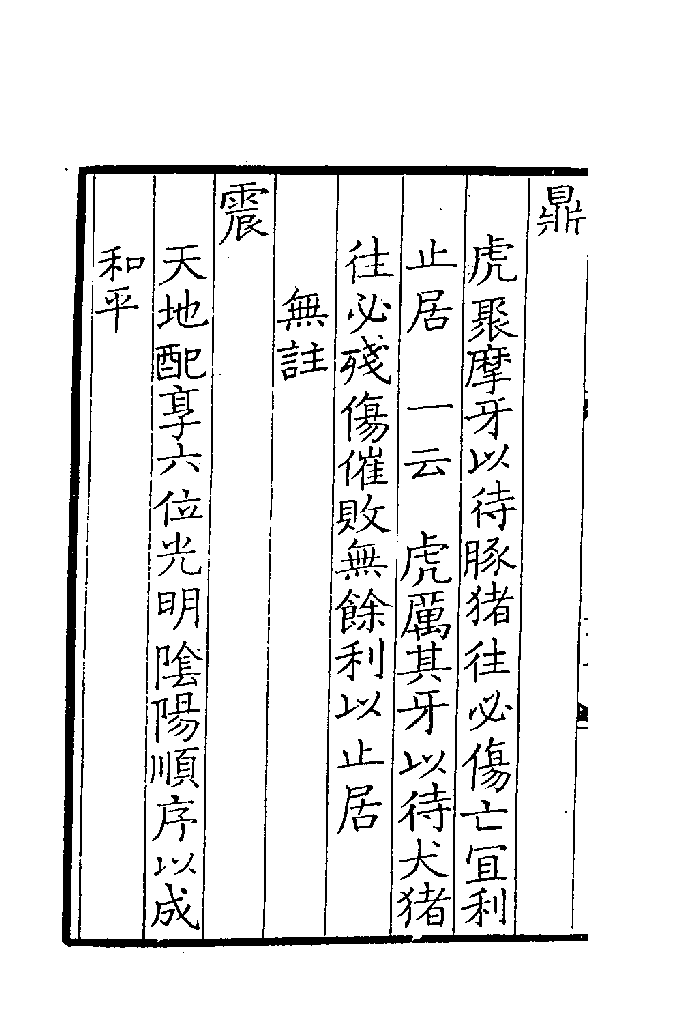 鼎
虎聚摩牙以待豚猪往必傷亡冝利
止居　一云　虎厲其牙以待犬猪
往必殘傷催敗無餘利以止居
無註
震
天地配享六位光明隂陽順序以成
和平